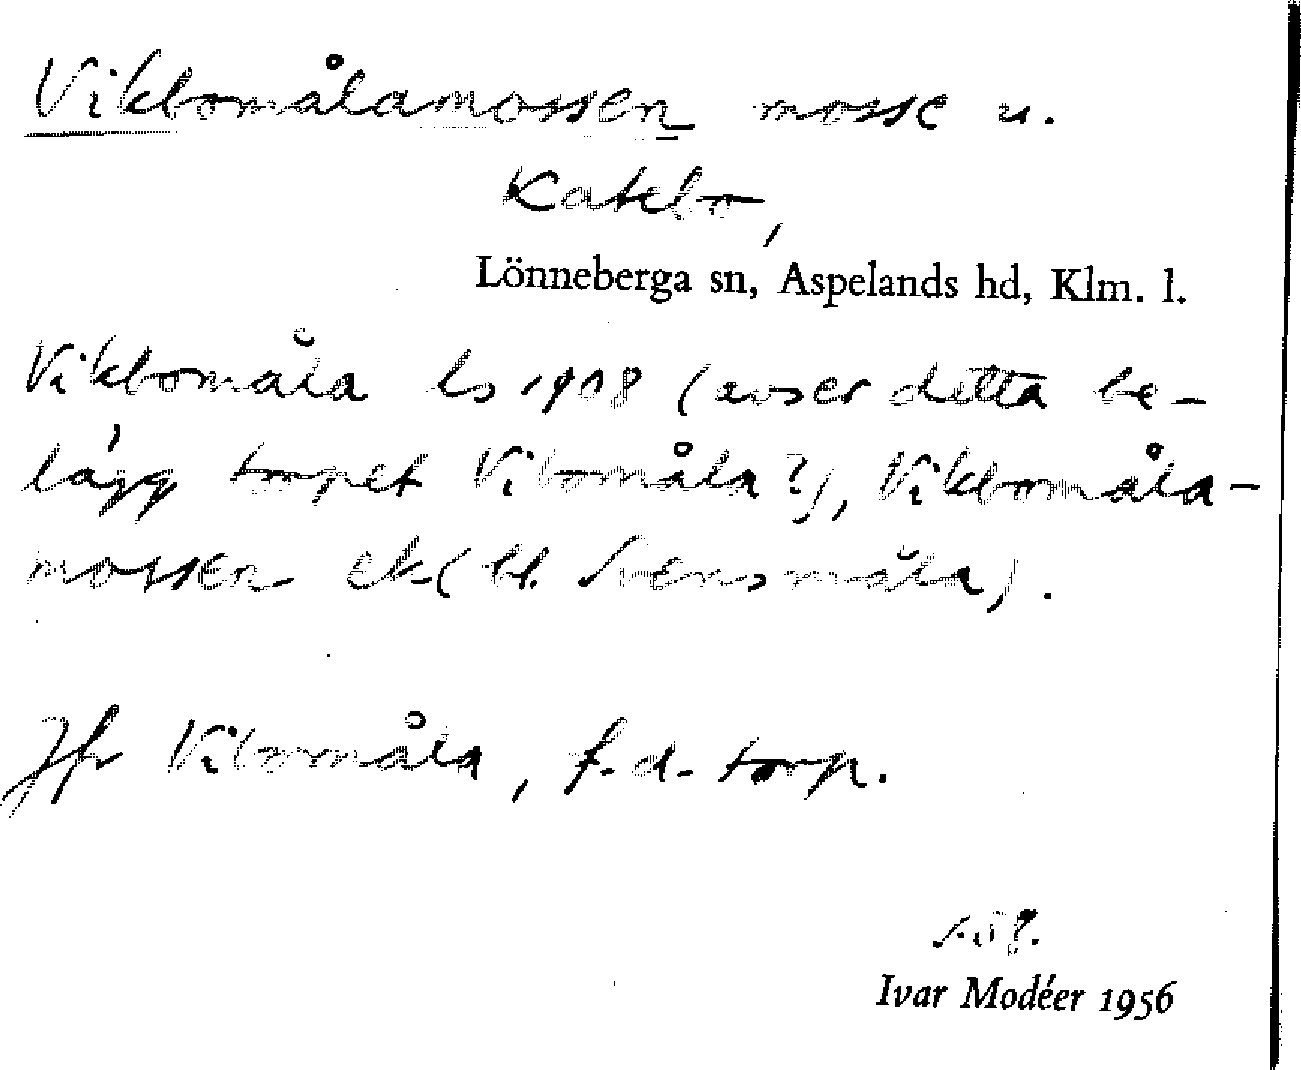 Viktomålamossen mosse u.
Katebo,
Lönneberga sn, Aspelands hd, Klm. l.
Vikbomåla ls 1908 (avser detta be-
lägg torpet Vibomåla?), Vikbomåla-
mossen ek (bl. Svensmåla).
Jfr Vibomåla, f.d. torp.
Ivar Modéer 1956